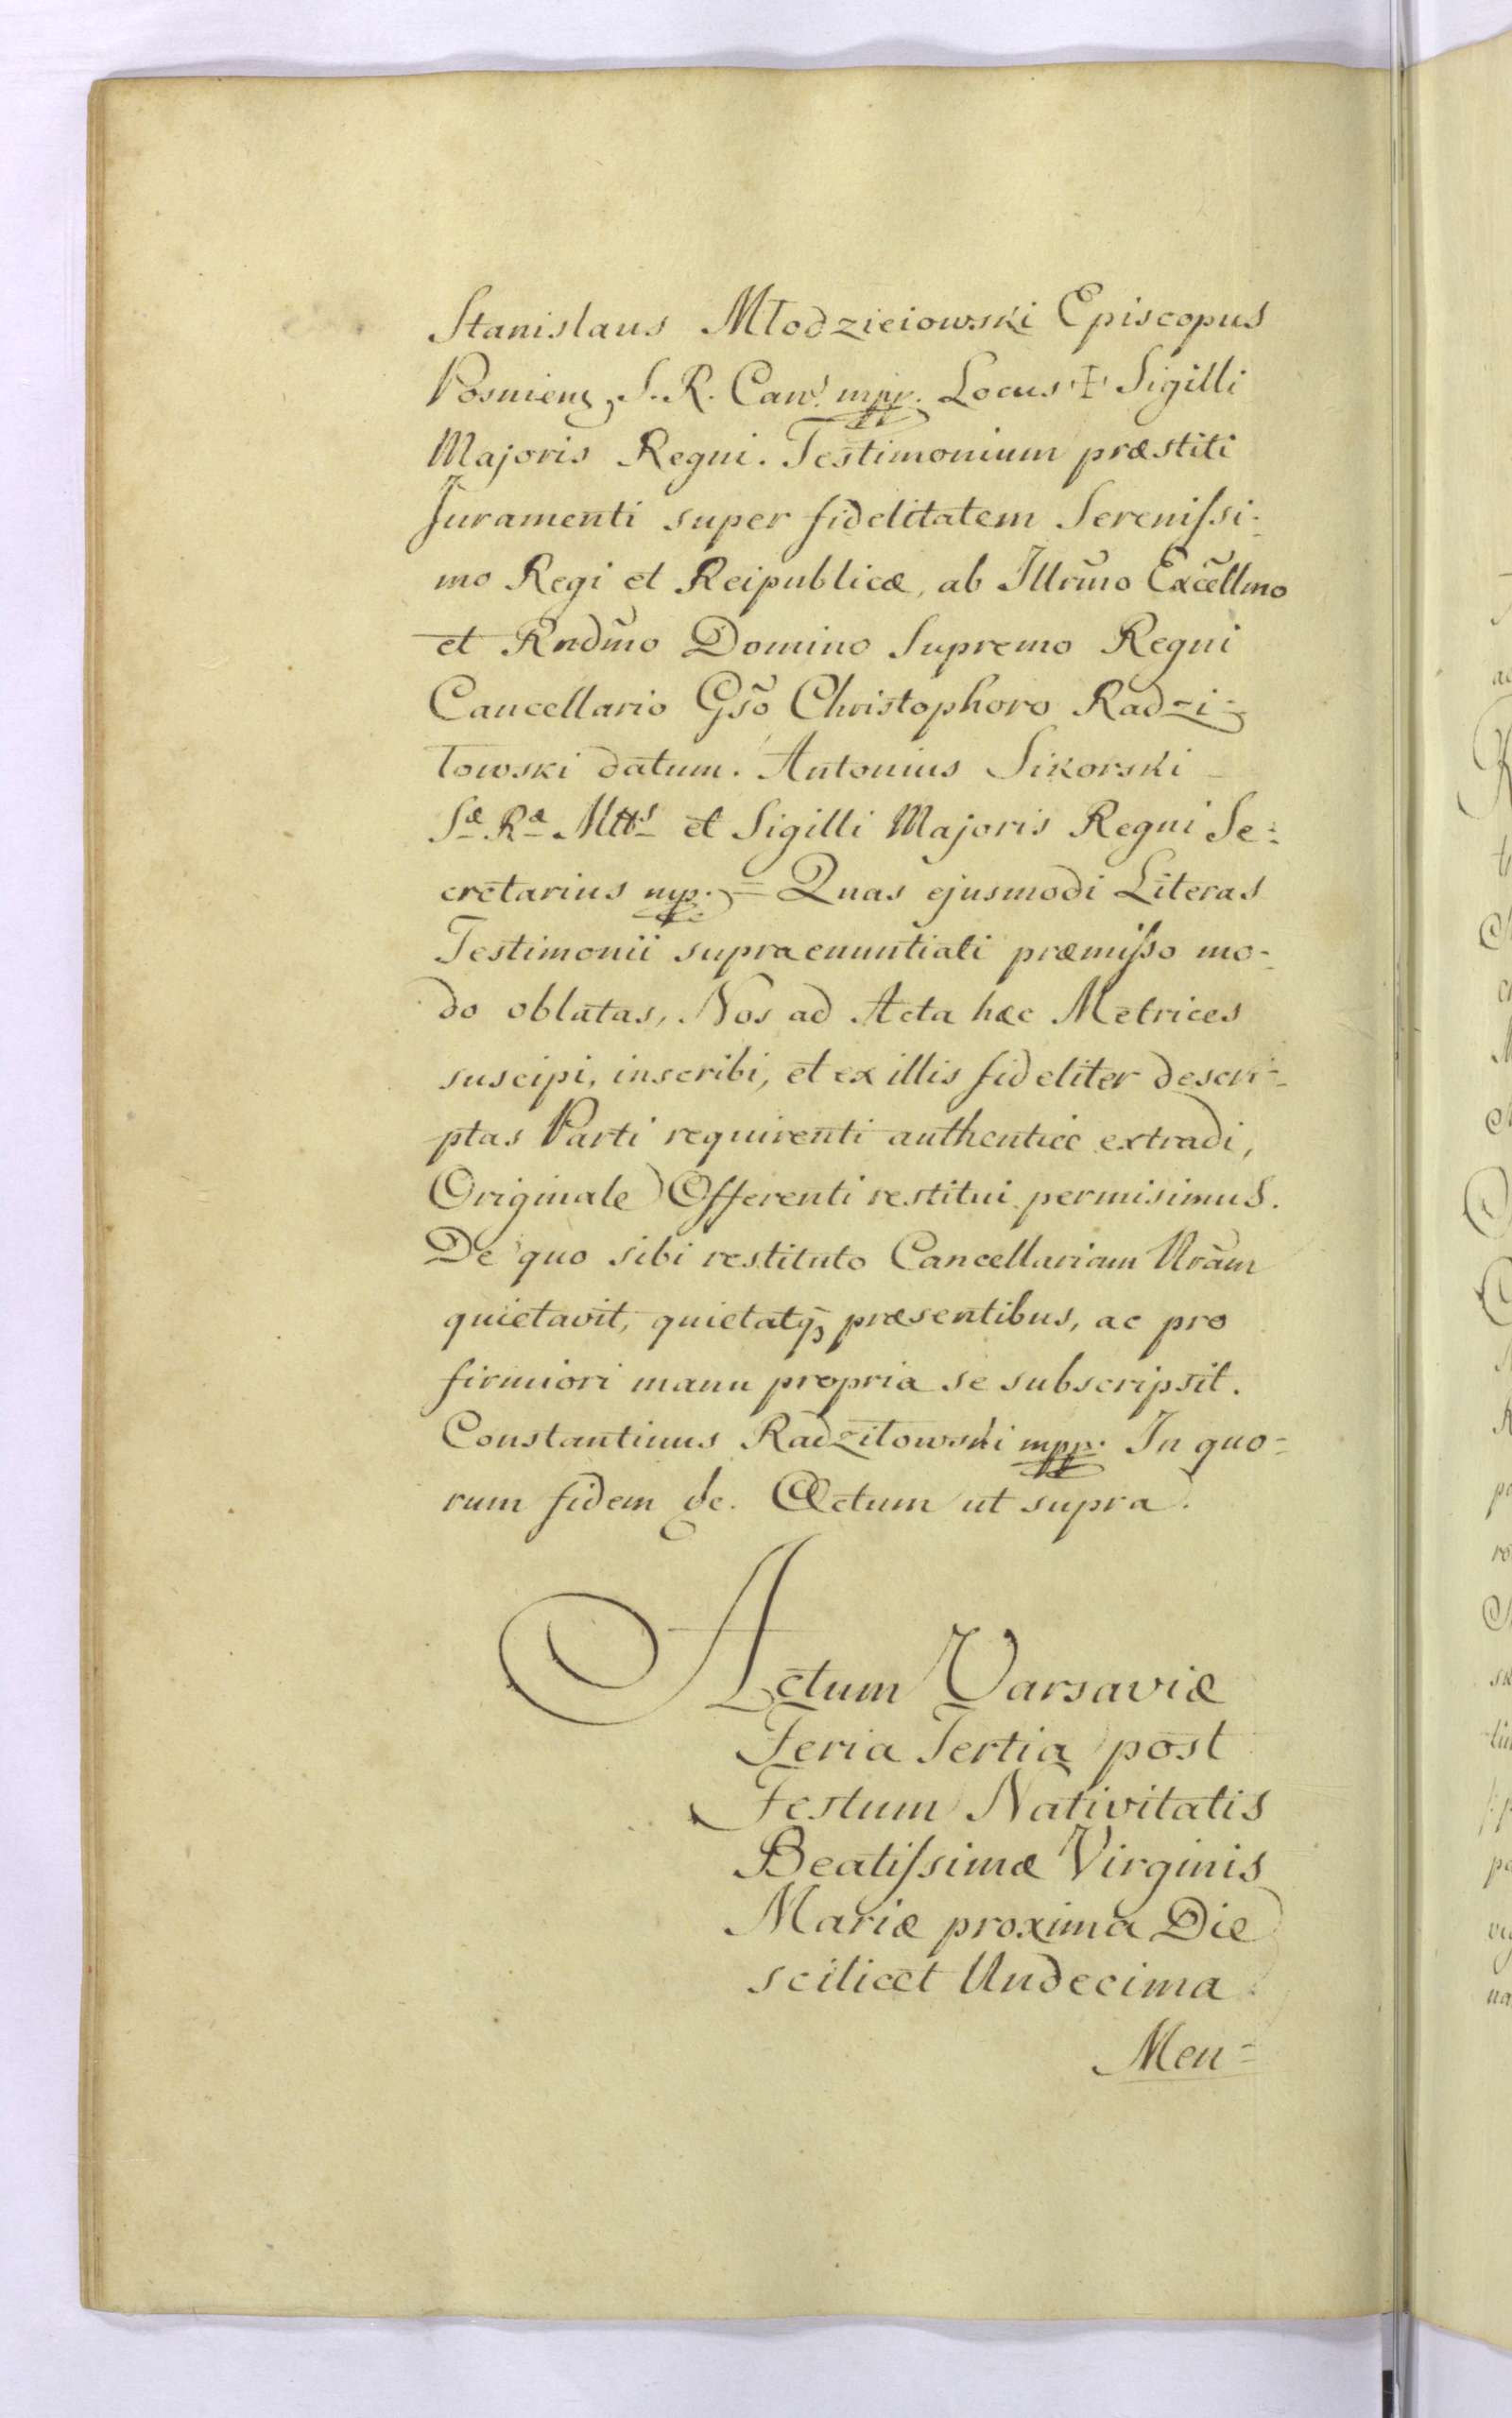 Stanislaus Młodzieiowski Episcopus
Posnienꝫ, S.R. Canc. mpp. Locus ‡ Sigilli
Majoris Regni. Testimonium præstiti
Juramenti super fidelitatem Sereniſsi-
mo Regi et Reipublicæ, ab Illrm̃o Excellm̃o
et Rndm̃o Domino Supremo Regni
Cancellario Gso Christophoro Radzi-
łowski datum. Antonius Sikorski
Sæ Ræ Mttis et Sigilli Majoris Regni Se-
cretarius mp. = Quas ejusmodi Literas
Testimonii supraenuntiati præmiſso mo-
do oblatas, Nos ad Acta hæc Metrices
suscipi, inscribi, et ex illis fideliter descri-
ptas Parti requirenti authentice extradi,
Originale Offerenti restitui permisimus.
De quo sibi restituto Cancellariam Nrãm
quietavit, quietatqꝫ præsentibus, ac pro
firmiori manu propria se subscripsit.
Constantinus Radziłowski mpp. In quo-
rum fidem &c. Actum ut supra.
Actum Varsaviæ
Feria Tertia post
Festum Nativitatis
Beatiſsimæ Virginis
Mariæ proxima Die
scilicet Undecima
Men-